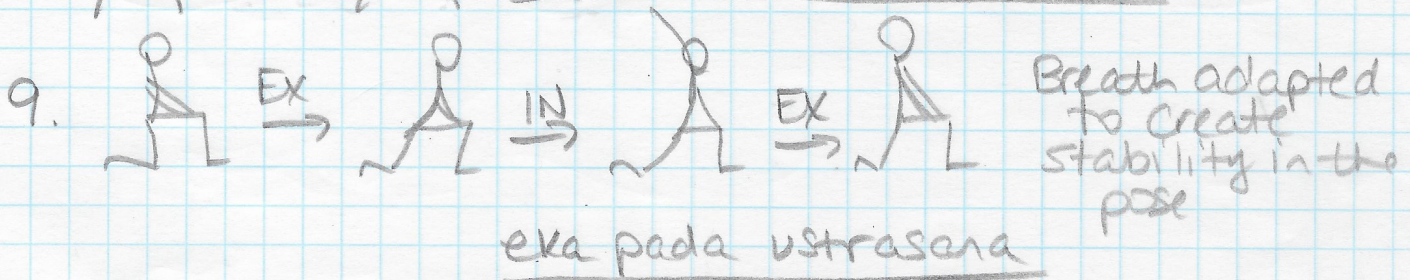 9. EX IN EX Breath adapted
to create
stability in the
pose
eka pada ustrasana